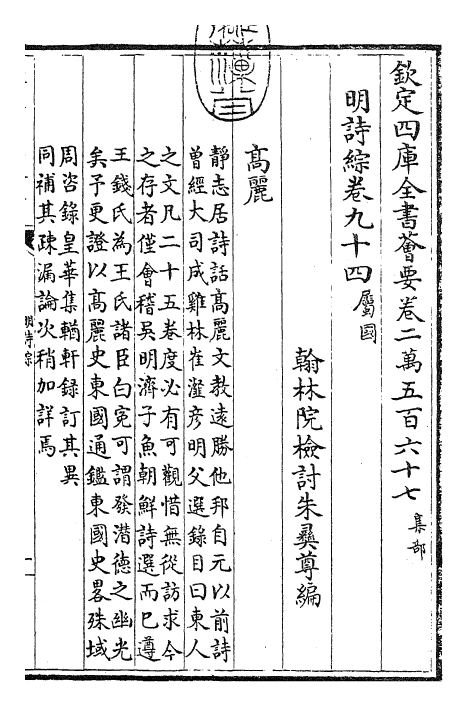 欽定四庫全書薈要卷二萬五百六十七 集部
明詩綜卷九十四 屬國
翰林院檢討朱彝尊編
高麗
靜志居詩話高麗文教遠勝他邦自元以前詩
曾經大司成雞林崔瀣彦明父選錄目曰東人
之文凡二十五卷度必有可觀惜無從訪求今
之存者僅會稽吳明濟子魚朝鮮詩選而已遵
王錢氏為王氏諸臣白寃可謂發潛德之幽光
矣予更證以高麗史東國通鑑東國史畧殊域
周咨錄皇華集輶軒録訂其異
同補其疎漏論次稍加詳焉
明詩綜
一